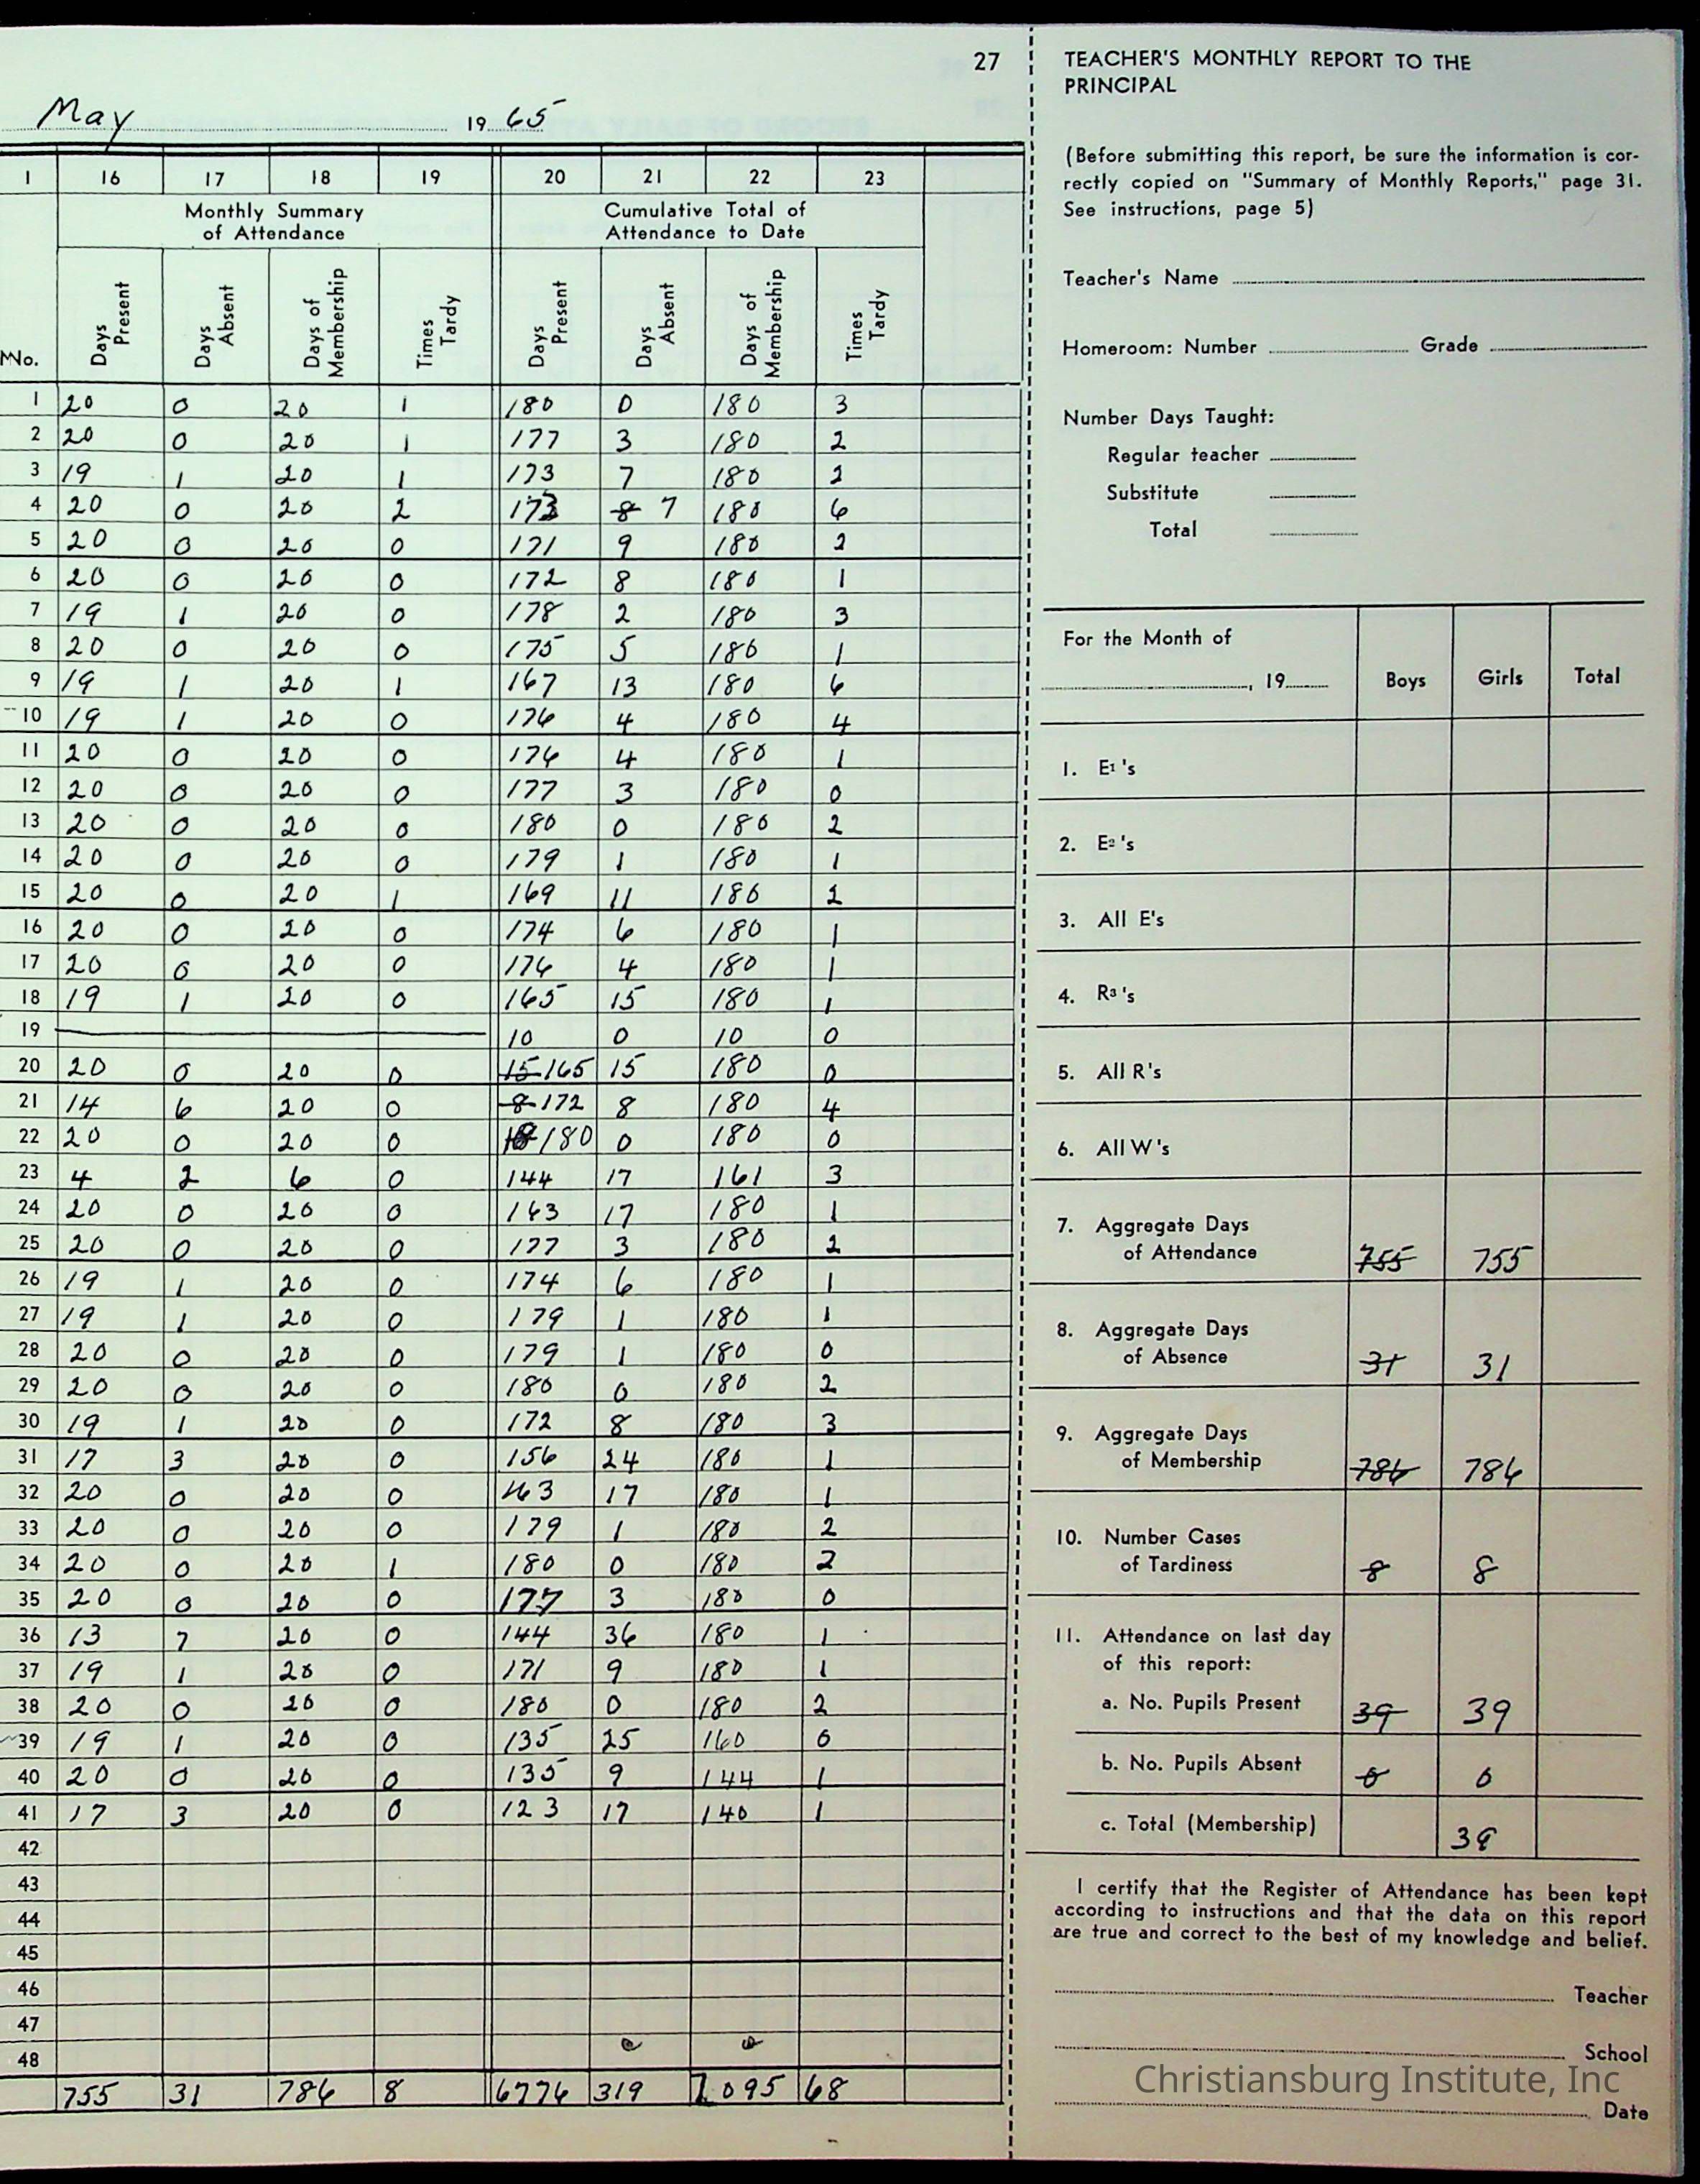 27
May 19 65
1 16 17 18 19 20 21 22 23
Monthly Summary of Attendance Cumulative Total of Attendance to Date
No. Days Present Days Absent Days of Membership Times Tardy Days Present Days Absent Days of Membership Times Tardy
1 20 0 20 1 180 0 180 3
2 20 0 20 1 177 3 180 2
3 19 1 20 1 173 7 180 2
4 20 0 20 2 173 8 7 180 6
5 20 0 20 0 171 9 180 2
6 20 0 20 0 172 8 180 1
7 19 1 20 0 178 2 180 3
8 20 0 20 0 175 5 180 1
9 19 1 20 1 167 13 180 6
10 19 1 20 0 176 4 180 4
11 20 0 20 0 176 4 180 1
12 20 0 20 0 177 3 180 0
13 20 0 20 0 180 0 180 2
14 20 0 20 0 179 1 180 1
15 20 0 20 1 169 11 180 2
16 20 0 20 0 174 6 180 1
17 20 0 20 0 176 4 180 1
18 19 1 20 0 165 15 180 1
19 10 0 10 0
20 20 0 20 0 15 165 15 180 0
21 14 6 20 0 8 172 8 180 4
22 20 0 20 0 180 0 180 0
23 4 2 6 0 144 17 161 3
24 20 0 20 0 163 17 180 1
25 20 0 20 0 177 3 180 2
26 19 1 20 0 174 6 180 1
27 19 1 20 0 179 1 180 1
28 20 0 20 0 179 1 180 0
29 20 0 20 0 180 0 180 2
30 19 1 20 0 172 8 180 3
31 17 3 20 0 156 24 180 1
32 20 0 20 0 163 17 180 1
33 20 0 20 0 179 1 180 2
34 20 0 20 1 180 0 180 2
35 20 0 20 0 177 3 180 0
36 13 7 20 0 144 36 180 1
37 19 1 20 0 171 9 180 1
38 20 0 20 0 180 0 180 2
39 19 1 20 0 135 25 160 0
40 20 0 20 0 135 9 144 1
41 17 3 20 0 123 17 140 1
42
43
44
45
46
47
48
755 31 786 8 6776 319 7095 68
TEACHER'S MONTHLY REPORT TO THE
PRINCIPAL
(Before submitting this report, be sure the information is cor-
rectly copied on "Summary of Monthly Reports," page 31.
See instructions, page 5)
Teacher's Name
Homeroom: Number Grade
Number Days Taught:
Regular teacher
Substitute
Total
For the Month of
, 19 Boys Girls Total
1. E1's
2. E2's
3. All E's
4. R3's
5. All R's
6. All W's
7. Aggregate Days
of Attendance 755 755
8. Aggregate Days
of Absence 31 31
9. Aggregate Days
of Membership 786 786
10. Number Cases
of Tardiness 8 8
11. Attendance on last day
of this report:
a. No. Pupils Present 39 39
b. No. Pupils Absent 0 0
c. Total (Membership) 39
I certify that the Register of Attendance has been kept
according to instructions and that the data on this report
are true and correct to the best of my knowledge and belief.
Teacher
School
Christiansburg Institute, Inc
Date